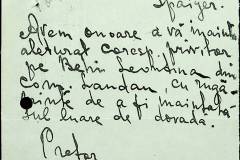 Avem onoare a vă înainta
alăturat coresp. privitor
pe Beriu Leontina din
com. Landan, cu rugă
minte de a fi înaintată
de dovadă.
Pretor